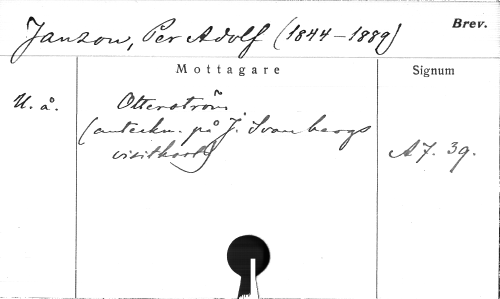 Janzon, Per Adolf (1844-1889)
Brev.
Mottagare
Signum
U. å.
Otterström
(anteckn. på J. Svanbergs
visitkort)
A7. 39.